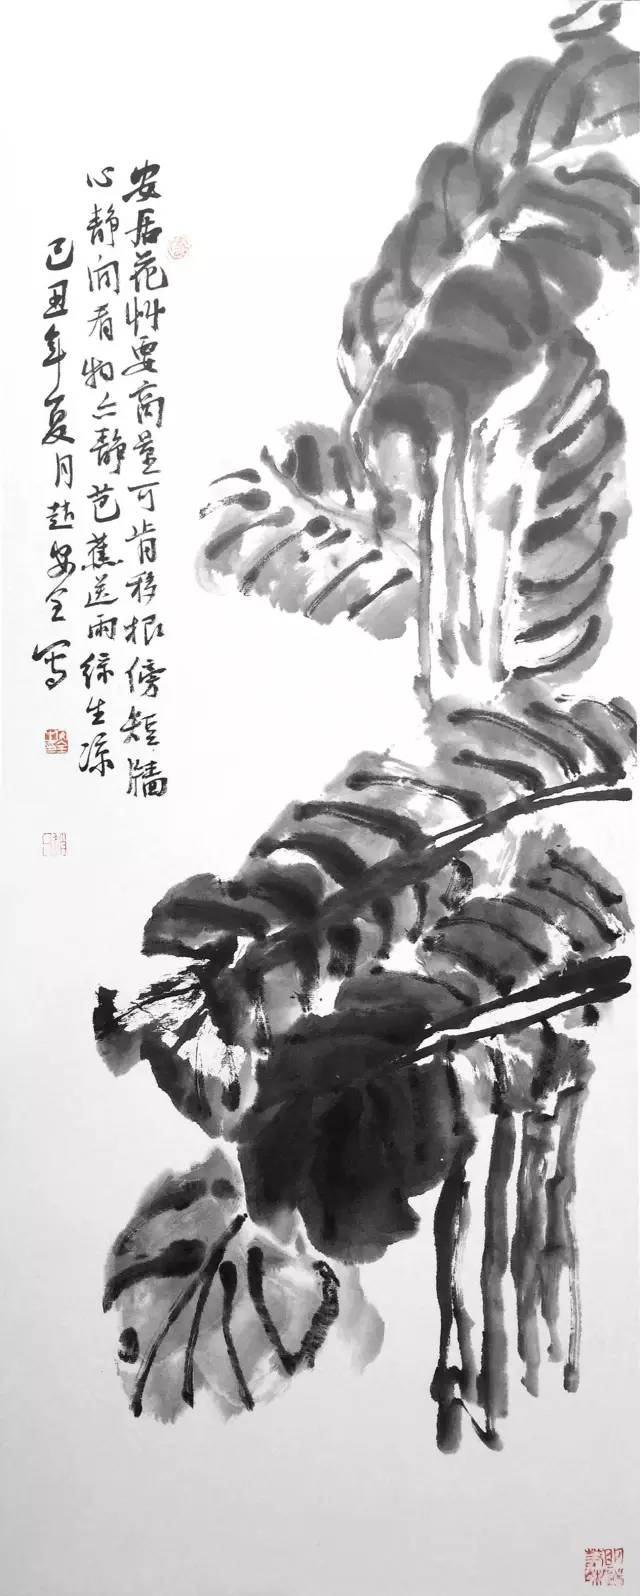 安居花艸要商量可肯移根傍短牆
心静闲看物亦静芭蕉送雨绿生凉
己丑年夏月赵安全写